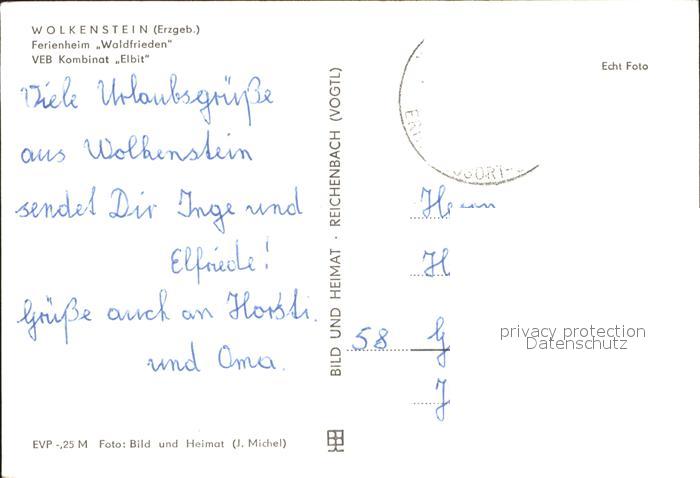 WOLKENSTEIN (Erzgeb.)
Ferienheim „Waldfrieden“
VEB Kombinat „Elbit“
Viele Urlaubsgrüße
aus Wolkenstein
sendet Dir Inge und
Elfriede!
Grüße auch an Horsti.
und Oma.
EVP -,25 M Foto: Bild und Heimat (J. Michel)
BILD UND HEIMAT · REICHENBACH (VOGTL)
Echt Foto
Herrn
H
58 G
J
privacy protection
Datenschutz